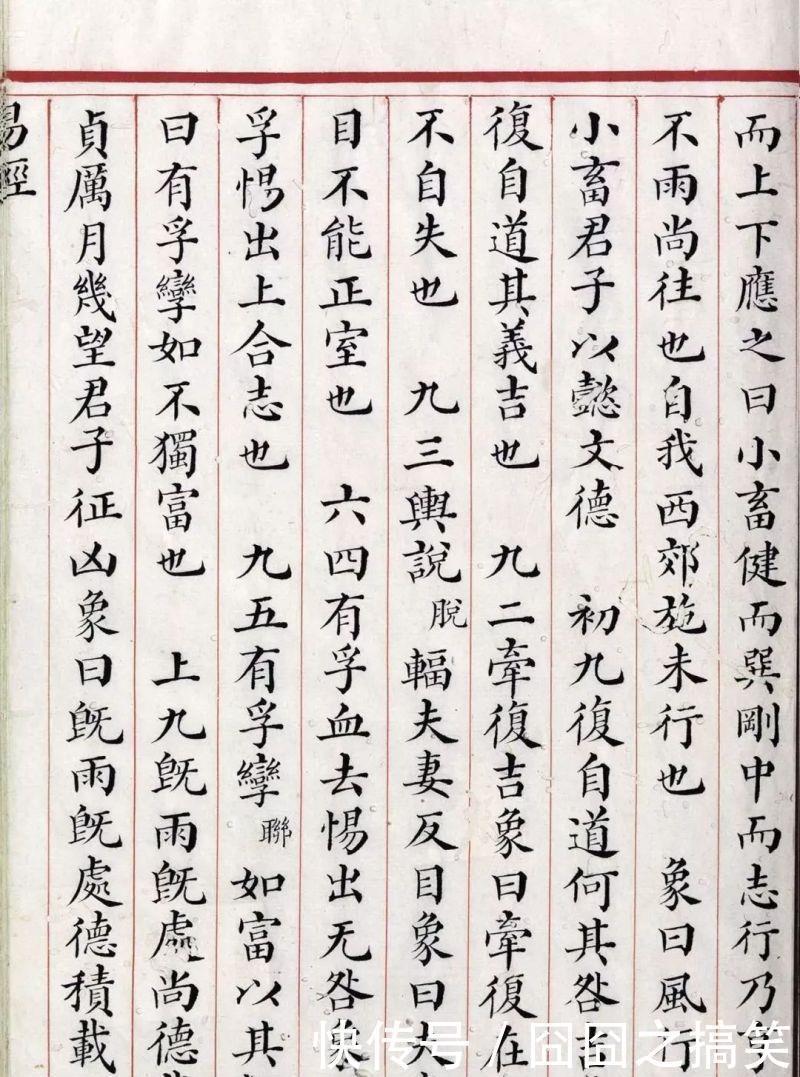 而上下應之曰小畜健而巽剛中而志行乃亨
不雨尚往也自我西郊施未行也 象曰風行
小畜君子以懿文德 初九復自道何其咎吉
復自道其義吉也 九二牽復吉象曰牽復在
不自失也 九三輿說脫輻夫妻反目象曰夫
目不能正室也 六四有孚血去惕出无咎象
孚惕出上合志也 九五有孚攣聯如富以其
曰有孚攣如不獨富也 上九既雨既處尚德
貞厲月幾望君子征凶象曰既雨既處德積載
易經
快传号 / 囧囧之搞笑